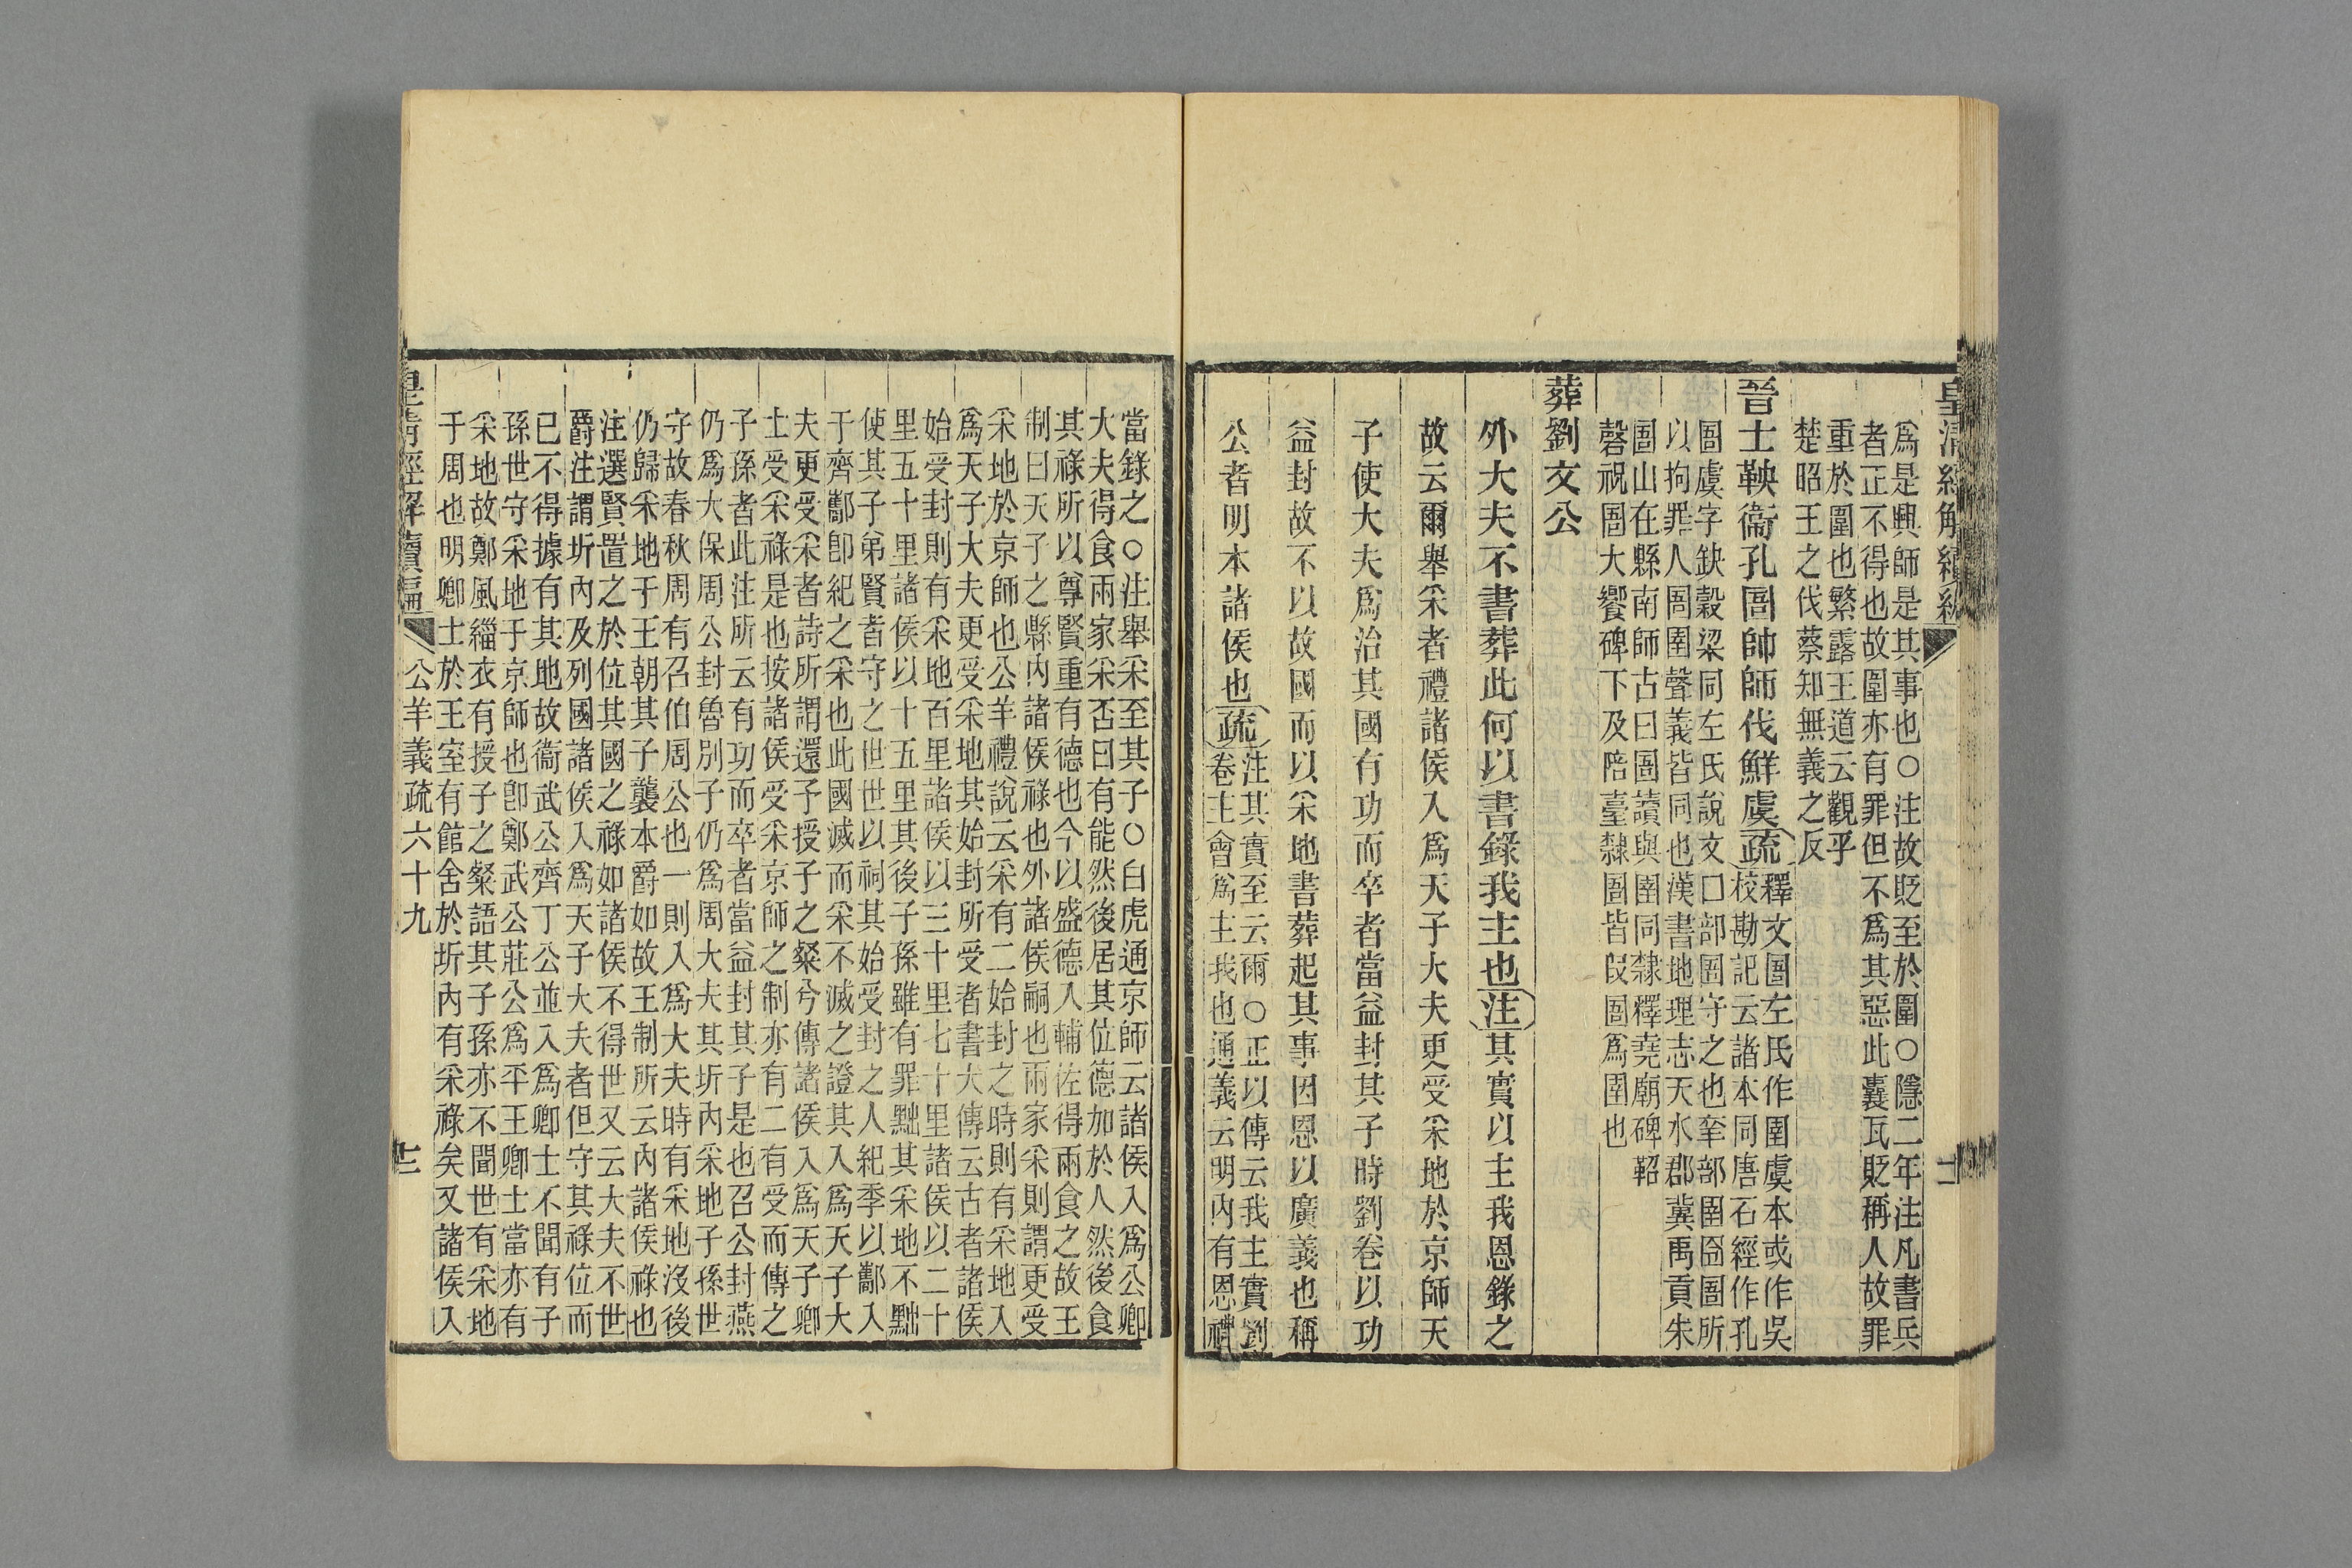 皇清經解續編
爲是興師是其事也○注故貶至於圍○隱二年注凡書兵
者正不得也故圍亦有罪但不爲其惡此囊瓦貶稱人故罪
重於圍也繁露王道云觀乎
楚昭王之伐蔡知無義之反
晉士鞅衞孔圄帥師伐鮮虞疏釋文圄左氏作圉虞本或作吳
校勘記云諸本同唐石經作孔
圄虞字缺穀梁同左氏說文囗部圄守之也㚔部圉囹圄所
以拘罪人圄圉聲義皆同也漢書地理志天水郡冀禹貢朱
圄山在縣南師古曰圄讀與圉同隸釋堯廟碑䩦
磬祝圄大饗碑下及陪臺隸圄皆叚圄爲圉也
葬劉文公
外大夫不書葬此何以書錄我主也注其實以主我恩錄之
故云爾舉采者禮諸侯入爲天子大夫更受采地於京師天
子使大夫爲治其國有功而卒者當益封其子時劉卷以功
益封故不以故國而以采地書葬起其事因恩以廣義也稱
公者明本諸侯也疏注其實至云爾○正以傳云我主實劉
卷主會爲主我也通義云明內有恩禮
當錄之○注舉采至其子○白虎通京師云諸侯入爲公卿
大夫得食兩家采否曰有能然後居其位德加於人然後食
其祿所以尊賢重有德也今以盛德入輔佐得兩食之故王
制曰天子之縣內諸侯祿也外諸侯嗣也兩家采則謂更受
采地於京師也公羊禮說云采有二始封之時則有采地入
爲天子大夫更受采地其始封所受者書大傳云古者諸侯
始受封則有采地百里諸侯以三十里七十里諸侯以二十
里五十里諸侯以十五里其後子孫雖有罪黜其采地不黜
使其子弟賢者守之世世以祠其始受封之人紀季以酅入
于齊酅卽紀之采也此國滅而采不滅之證其入爲天子大
夫更受采者詩所謂還予授子之粲兮傳諸侯入爲天子卿
士受采祿是也按諸侯受采京師之制亦有二有受而傳之
子孫者此注所云有功而卒者當益封其子是也召公封燕
仍爲大保周公封魯別子仍爲周大夫其圻內采地子孫世
守故春秋周有召伯周公也一則入爲大夫時有采地沒後
仍歸采地于王朝其子襲本爵如故王制所云內諸侯祿也
注選賢置之於位其國之祿如諸侯不得世又云大夫不世
爵注謂圻內及列國諸侯入爲天子大夫者但守其祿位而
已不得據有其地故衞武公齊丁公並入爲卿士不聞有子
孫世守采地于京師也卽鄭武公莊公爲平王卿士當亦有
采地故鄭風緇衣有授子之粲語其子孫亦不聞世有采地
于周也明卿士於王室有館舍於圻內有采祿矣又諸侯入
皇清經解續編 公羊義疏六十九 十二